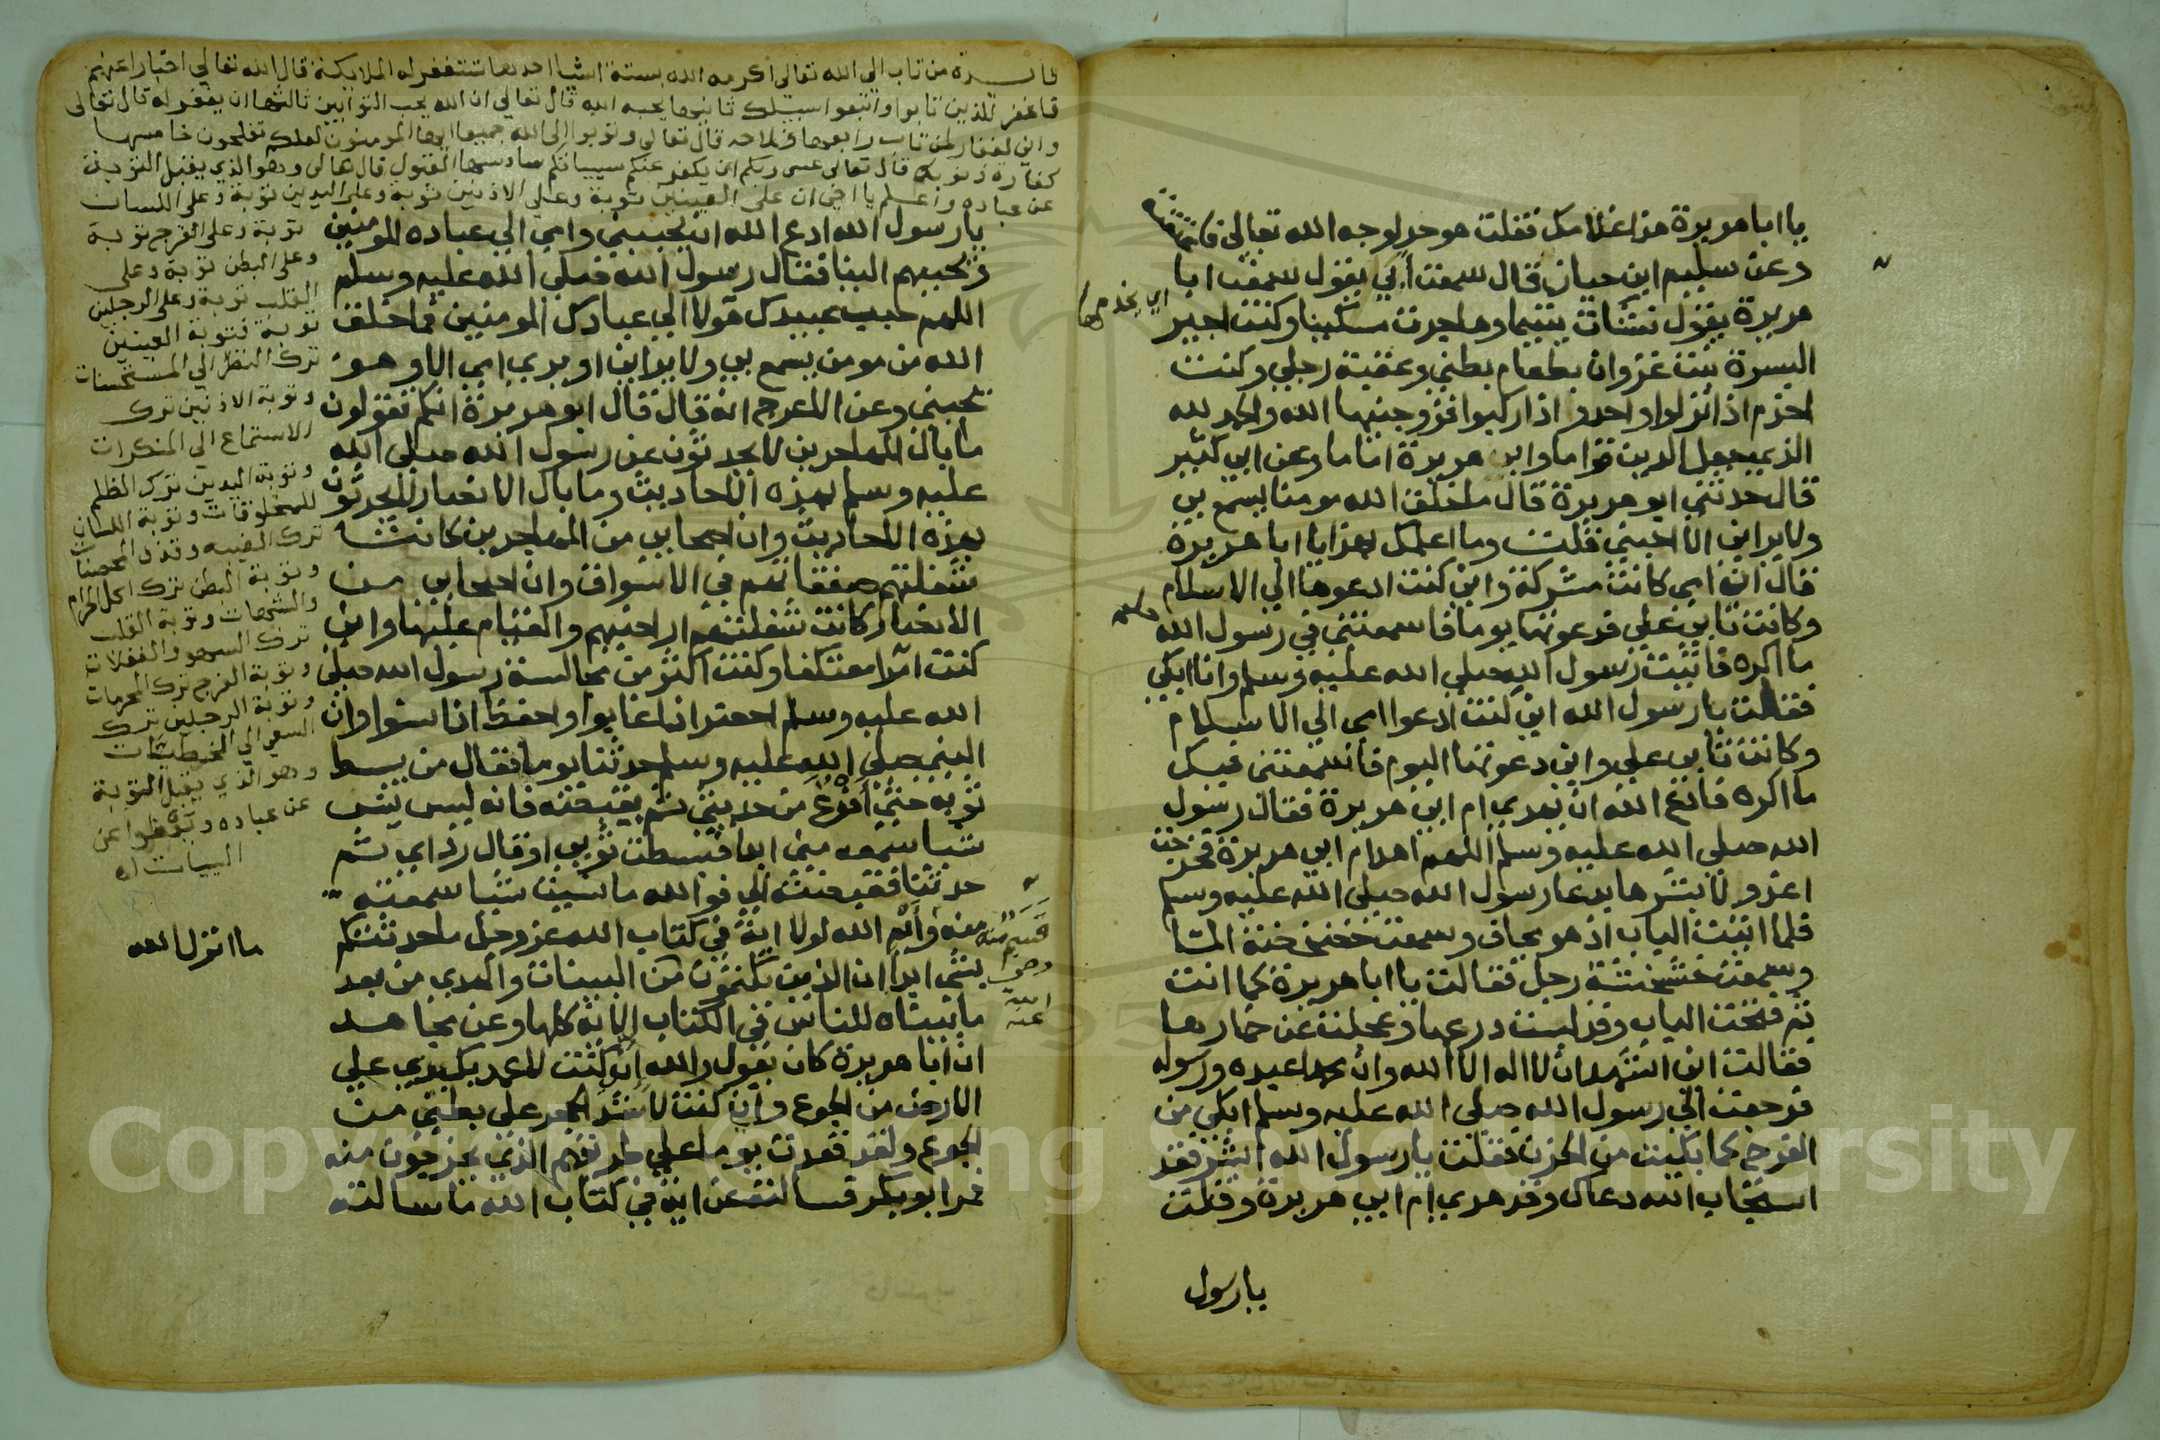 يا ابا هريرة هذا غلامك فقلت هو حر لوجه الله تعالى فاعتقته
وعن سليم ابن حيان قال سمعت أبي يقول سمعت ابا
هريرة يقول نشأت يتيما وهاجرت مسكينا وكنت اجير
البسرة بنت غزوان بطعام بطني وعقبة رجلي وكنت
اخدم اذا نزلوا واحدو اذا ركبوا فزوجنيها الله والحمد لله
الذي جعل الدين قواما وابي هريرة اماما وعن ابي كثير
قال حدثني ابو هريرة قال ما خلق الله مومنا يسمع بي
ولا يراني الا احبني قلت وما اعلمك بهذا يا ابا هريرة
قال ان امي كانت مشركة واني كنت ادعوها الي الاسلام
وكانت تابي علي فدعوتها يوما فاسمعتني في رسول الله
ما اكره فاتيت رسول الله صلي الله عليه وسلم وانا ابكي
فقلت يا رسول الله اني كنت ادعوا امي الي الاسلام
وكانت تابي علي واني دعوتها اليوم فاسمعتني فيك
ما اكره فادع الله ان يهدي ام ابي هريرة فقال رسول
الله صلي الله عليه وسلم اللهم اهد ام ابي هريرة فخرجت
اعدو لابشرها بدعا رسول الله صلي الله عليه وسلم
فلما اتيت الباب اذ هو مجاف وسمعت خضخضة الما
وسمعت خشخشة رجل فقالت يا ابا هريرة كما انت
ثم فتحت الباب وقد لبست درعها وعجلت عن خمارها
فقالت اني اشهد ان لا اله الا الله وان محمدا عبده ورسوله
فرجعت الي رسول الله صلي الله عليه وسلم ابكي من
الفرح كما بكيت من الحزن فقلت يا رسول الله ابشر فقد
استجاب الله دعاك وقد هدي ام ابي هريرة وقلت
يا رسول
اي يخدمها
يا رسول الله ادع الله ان يحببني وامي الي عباده المومنين
ويحببهم الينا فقال رسول الله صلي الله عليه وسلم
اللهم حبب عبيدك هولا الي عبادك المومنين فما خلق
الله من مومن يسمع بي ولا يراني او يري امي الا وهو
يحبني وعن الاعرج انه قال قال ابو هريرة انكم تقولون
ما بال المهاجرين لا يحدثون عن رسول الله صلي الله
عليه وسلم بهذه الاحاديث وما بال الانصار لا يحدثون
بهذه الاحاديث وان اصحابي من المهاجرين كانت
شغلتهم صفقاتهم في الاسواق وان اصحابي من
الانصار كانت شغلتهم اراضيهم والقيام عليها واني
كنت امرا معتكفا وكنت اكثر من مجالسة رسول الله صلي
الله عليه وسلم احضر اذا غابوا واحفظ اذا نسوا وان
النبي صلي الله عليه وسلم حدثنا يوما فقال من يبسط
ثوبه حتي افرغ من حديثي ثم يقبضه فانه ليس ينسي
شيا سمعه مني ابدا فبسطت ثوبي او قال رداي ثم
حدثنا فقبضته الي فوالله ما نسيت شيا سمعته
منه وايم الله لولا اية في كتاب الله عز وجل ما حدثتكم
بشي ابدا ان الذين يكتمون من البينات والهدي من بعد
ما بيناه للناس في الكتاب الاية كلها وعن مجاهد
ان ابا هريرة كان يقول والله ان كنت لاعمد بكبدي علي
الارض من الجوع وان كنت لاشد الحجر علي بطني من
الجوع ولقد قعدت يوما علي طريقهم الذي يخرجون منه
فمر ابو بكر فسالته عن اية في كتاب الله ما سالته
ما انزل الله
من تاب الي الله تعالي اكرمه الله بستة اشيا احدها تستغفر له الملايكة قال الله تعالي اخبارا عنهم
فاغفر للذين تابوا واتبعوا سبيلك ثانيها يحبه الله قال تعالي ان الله يحب التوابين ثالثها ان يغفر له قال تعالي
واني لغفار لمن تاب رابعها فلاحه قال تعالي وتوبوا الي الله جميعا ايها المومنون لعلكم تفلحون خامسها
كفارة ذنوبه قال تعالي عسي ربكم ان يكفر عنكم سيياتكم سادسها القبول قال تعالي وهو الذي يقبل التوبة
عن عباده واعلم يا اخي ان علي العينين توبة وعلي الاذنين توبة وعلي اليدين توبة وعلي اللسان
توبة وعلي الفرج توبة
وعلي البطن توبة وعلي
القلب توبة وعلي الرجلين
توبة فتوبة العينين
ترك النظر الي المستحسنات
وتوبة الاذنين ترك
الاستماع الي المنكرات
وتوبة اليدين ترك الظلم
للمخلوقات وتوبة اللسان
ترك الغيبه وقذف المحصنات
وتوبة البطن ترك اكل الحرام
والشبهات وتوبة القلب
ترك السهو والغفلات
وتوبة الفرج ترك المحرمات
وتوبة الرجلين ترك
السعي الي الخطيئات
وهو الذي يقبل التوبة
عن عباده ويعفوا عن
السييات اه
Copyright © King Saud University
1957